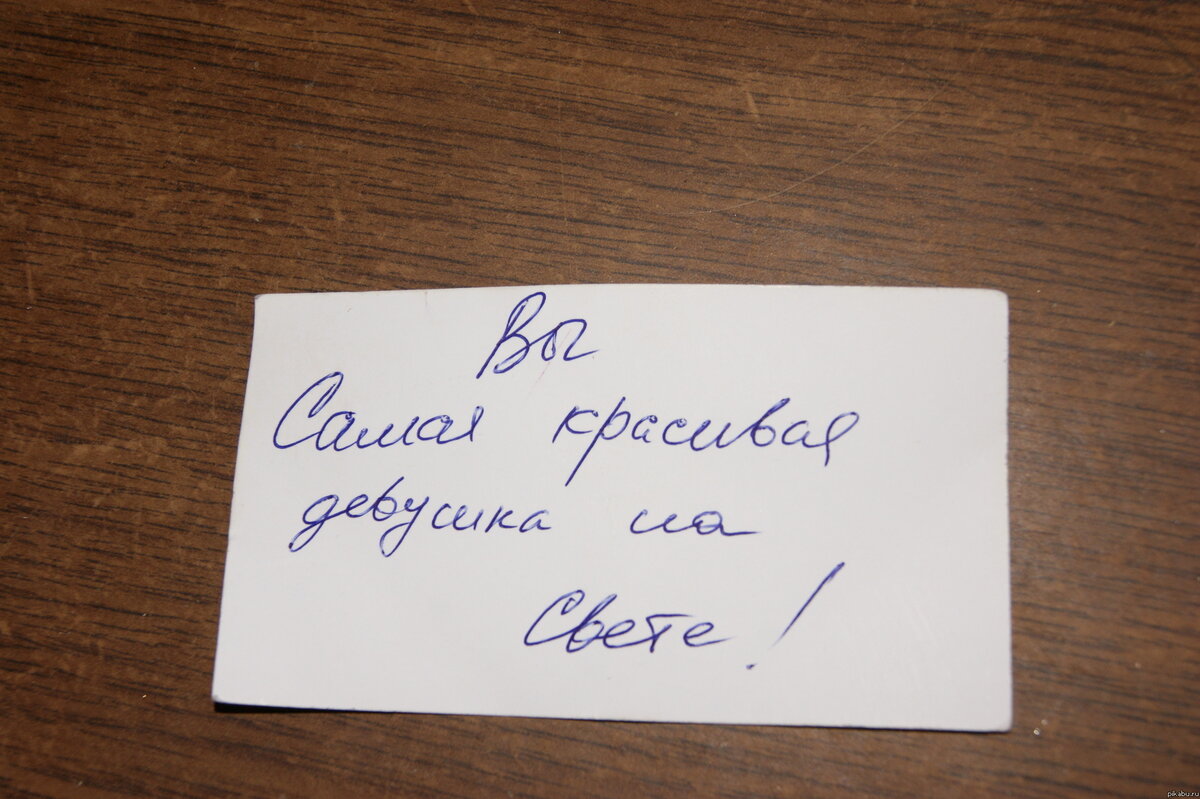 Вы
Самая красивая
девушка на
Свете!
pikabu.ru